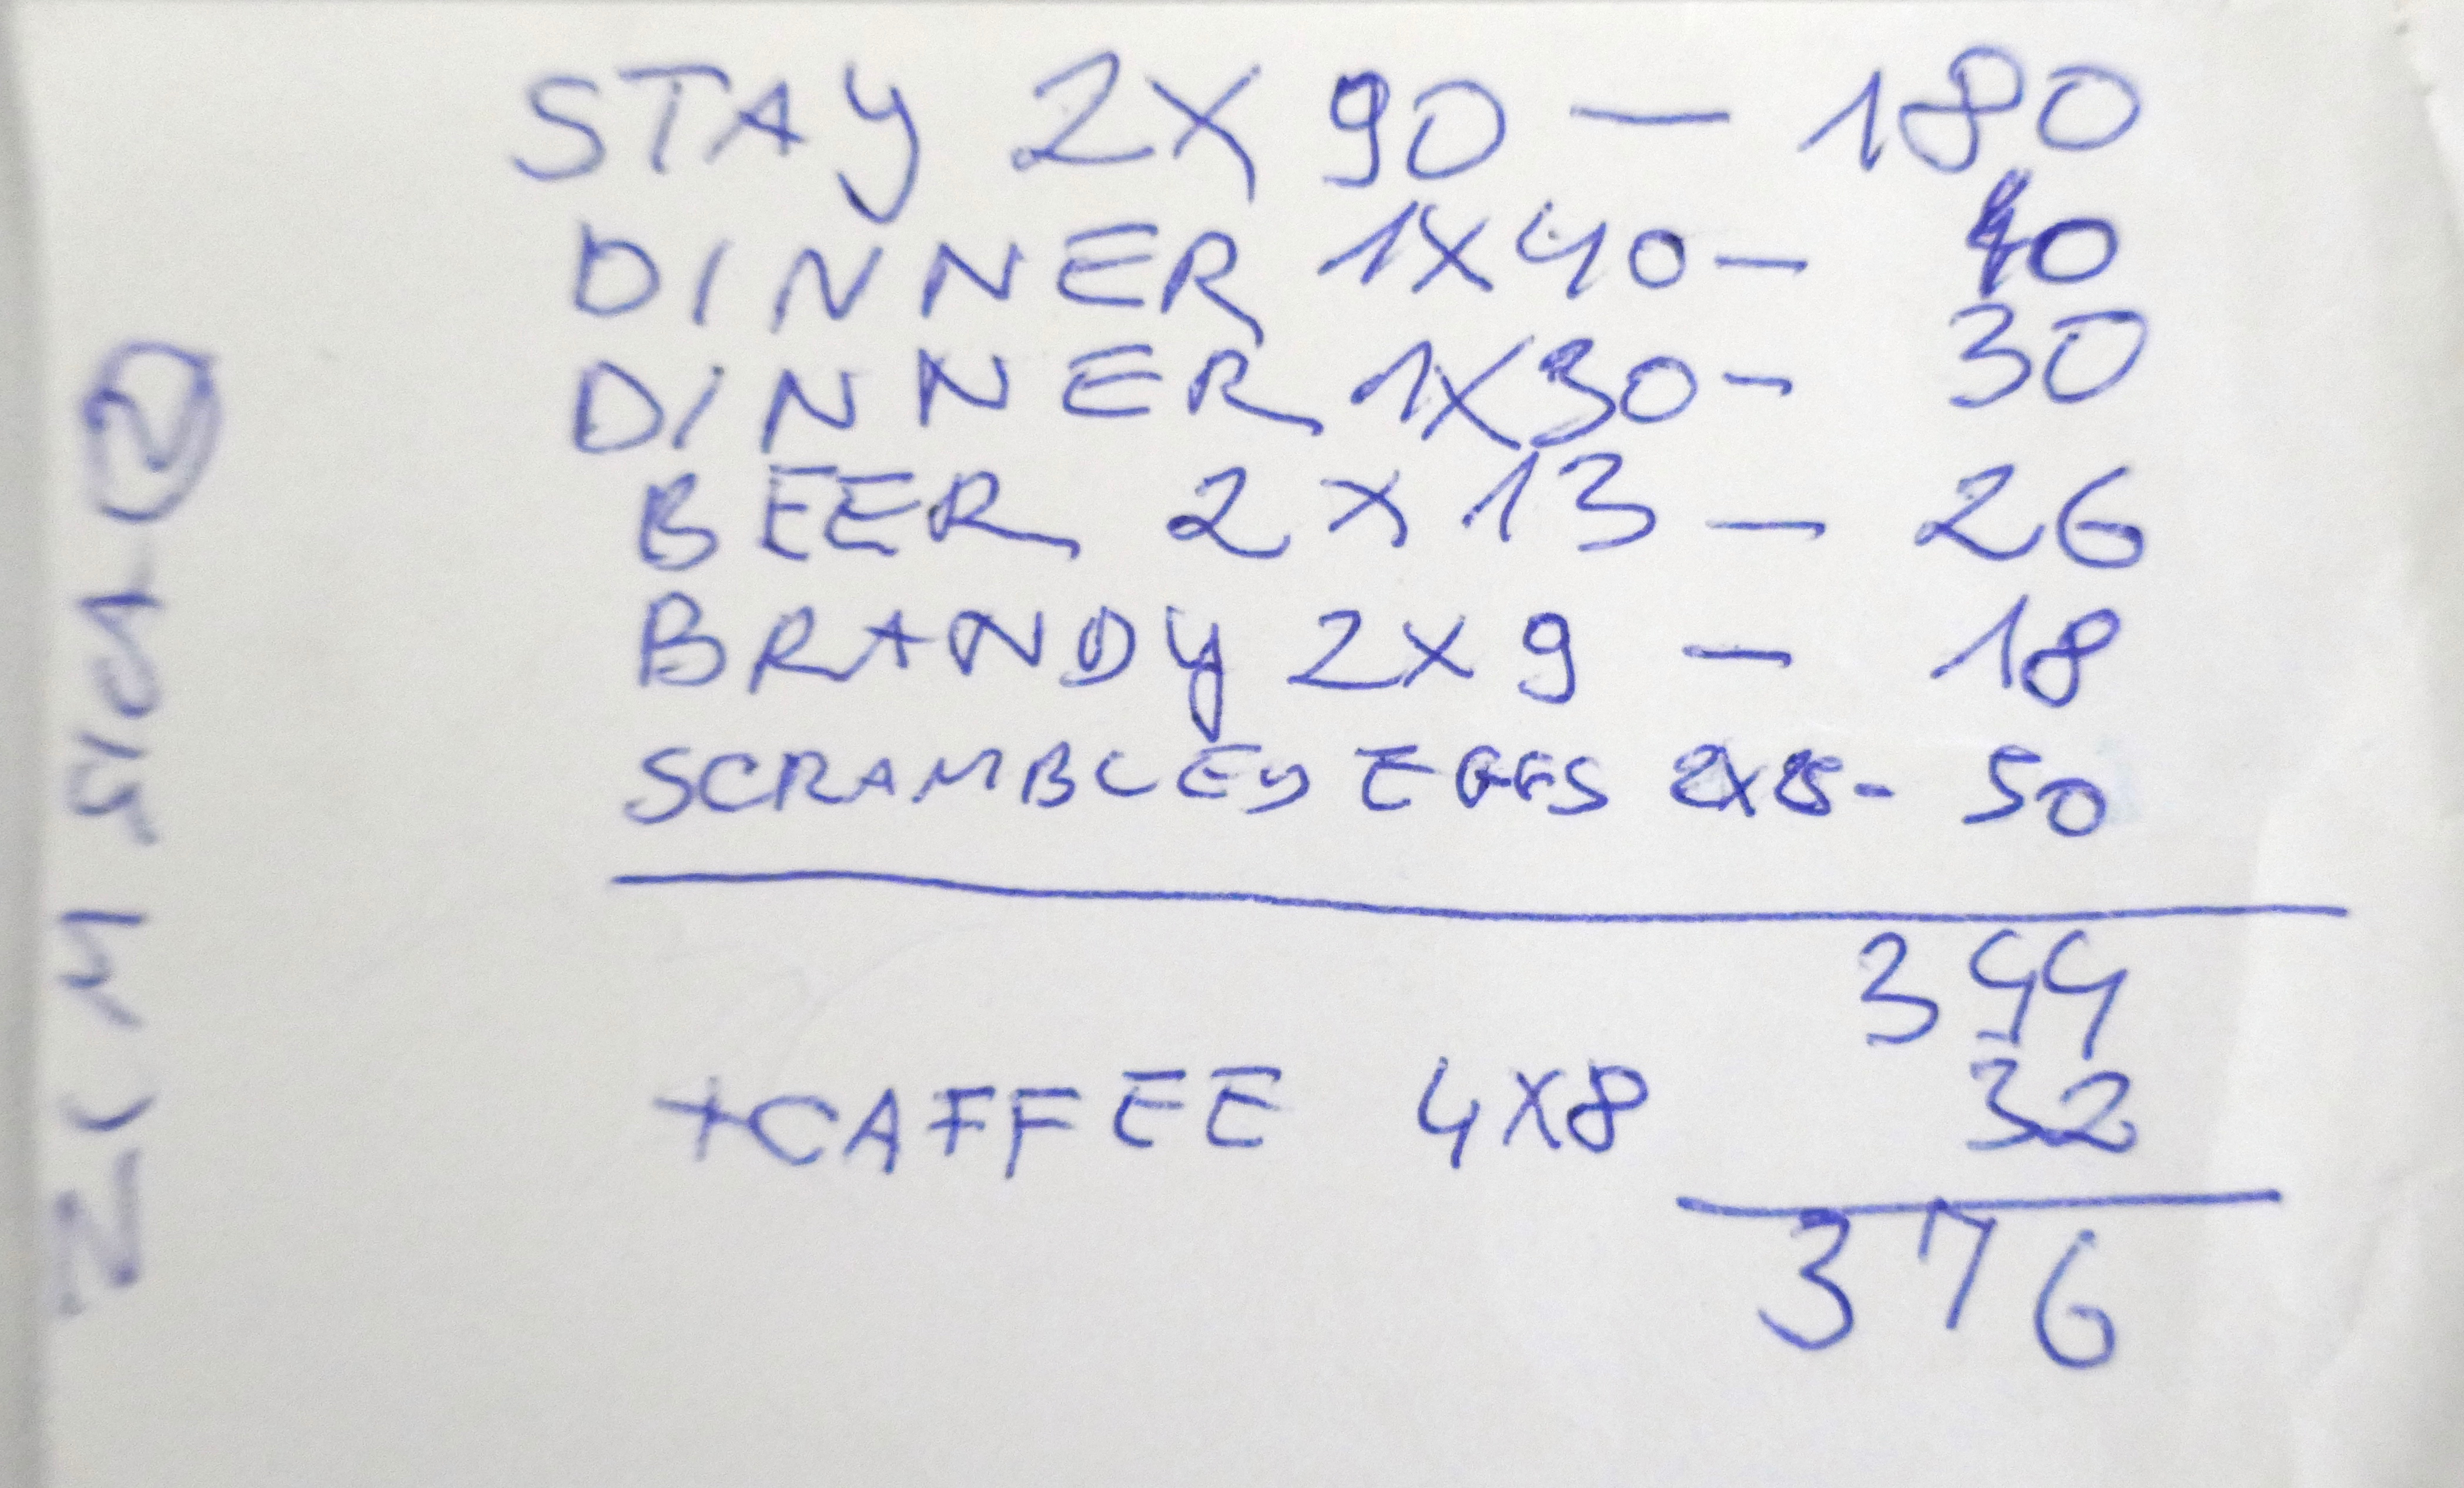 STAY 2X 90 — 180
DINNER 1X40 — 40
DINNER 1X30 - 30
BEER 2 X 13 — 26
BRANDY 2X9 — 18
SCRAMBLED EGGS 2X25 - 50
344
+CAFFEE 4X8 32
376